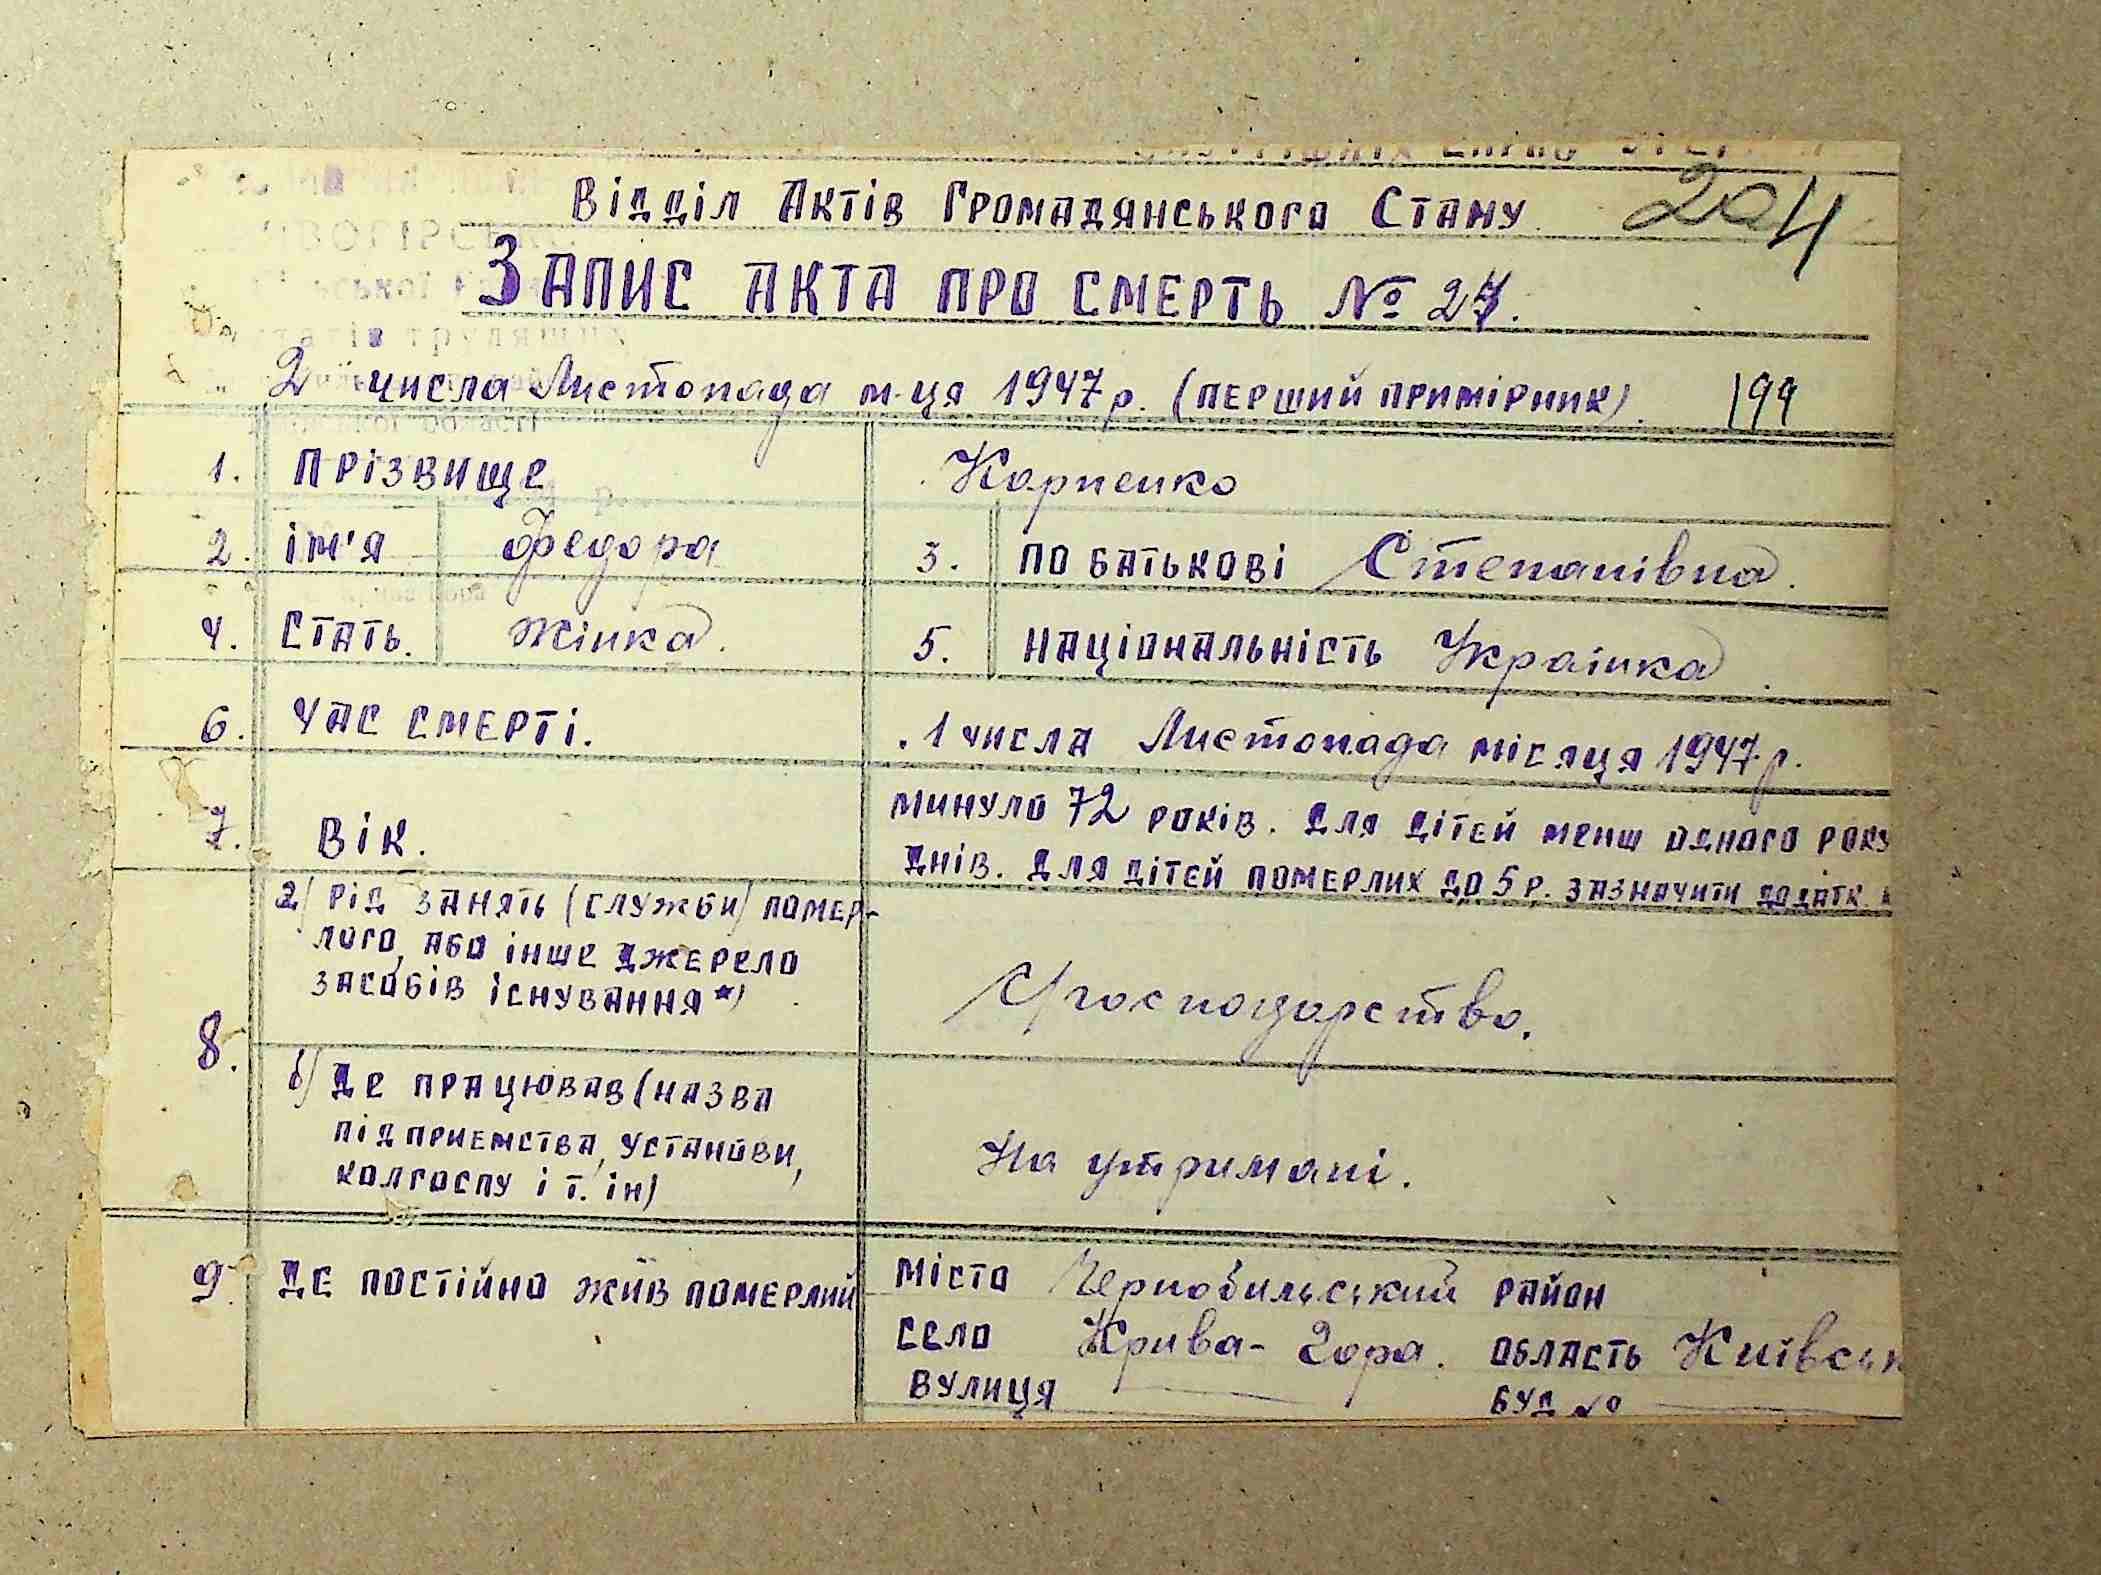 Відділ Актів Громадянського Стану 204
Запис акта про смерть № 27.
2 числа Листопада м-ця 1947 р. (перший примірник). 199
1. Прізвище Карпенко
2. ім'я Федора 3. по батькові Степанівна.
4. Стать. Жінка. 5. національність Українка.
6. Час смерті. 1 числа Листопада місяця 1947 р.
7. Вік. минуло 72 років. Для дітей менш одного року
днів. Для дітей померлих до 5 р. зазначити додатк.
8. а) рід занять (служби) помер-
лого, або інше джерело
засобів існування*)
С/господарство.
б) Де працював (назва
підприємства, установи,
колгоспу і т. ін)
На утримані.
9. Де постійно жив померлий місто Чернобильський район
село Крива-Гора. область Київськ
вулиця — буд № —